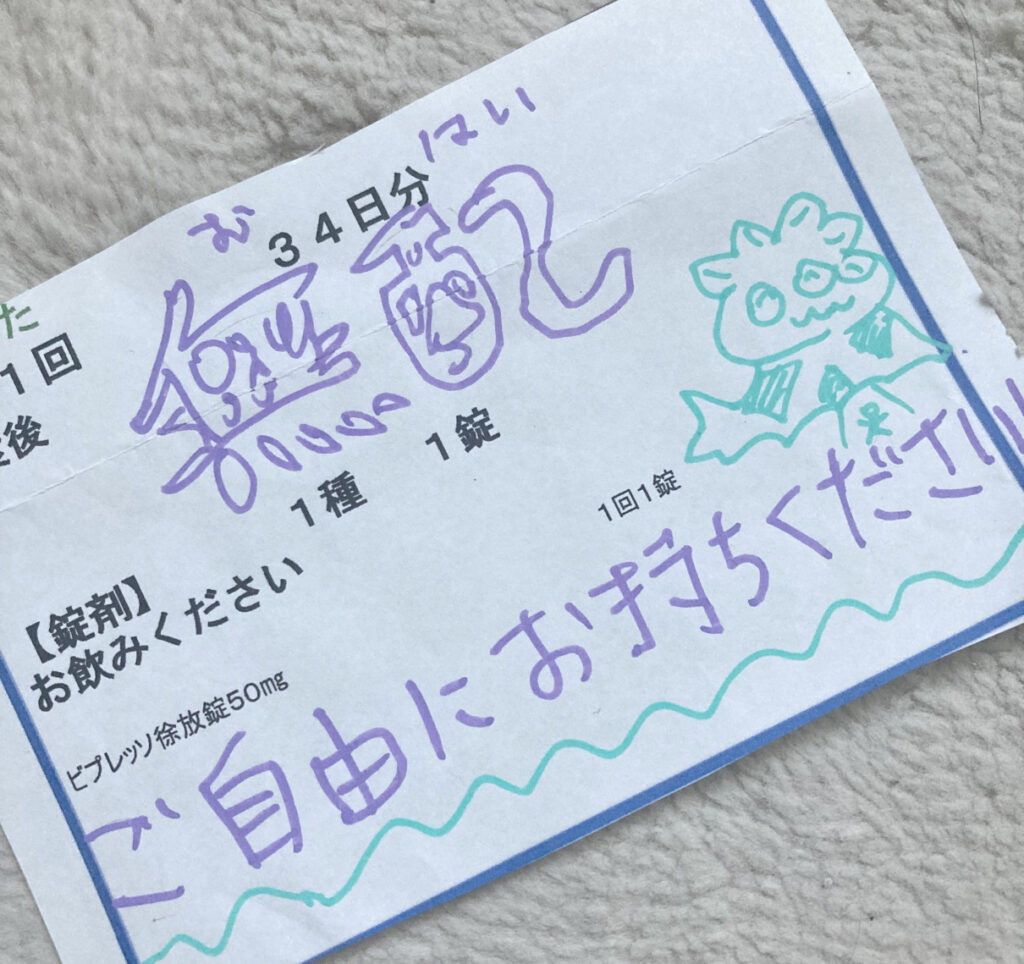 はい
む
34日分
無配
た
1回
後
1種 1錠
1回1錠
【錠剤】
お飲みください
ビプレッソ徐放錠50mg
ご自由にお持ちください